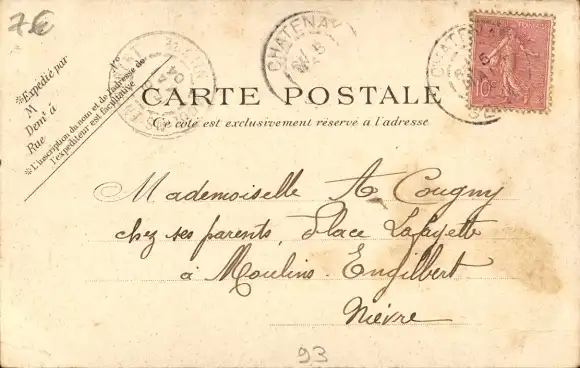 7€
CHATENAY
CHATENAY
10
*Expédié par
M
Demt à
Rue
*L'inscription du nom et de l'adresse de
l'expéditeur est facultative
CARTE POSTALE
Ce côté est exclusivement réservé a l'adresse
Mademoiselle A Cougny
chez ses parents, Place Lafayette
à Moulins-Engilbert
Nièvre
93